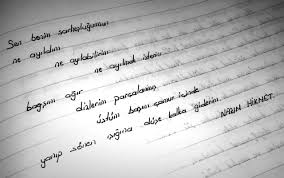 Sen benim sarhoşluğumsun
ne ayıldım
ne ayılabilirim
ne ayılmak isterim
başım ağır
dizlerim parçalanmış
üstüm başım çamur içinde
yanıp sönen ışığına düşe kalka giderim
NAZIM HİKMET